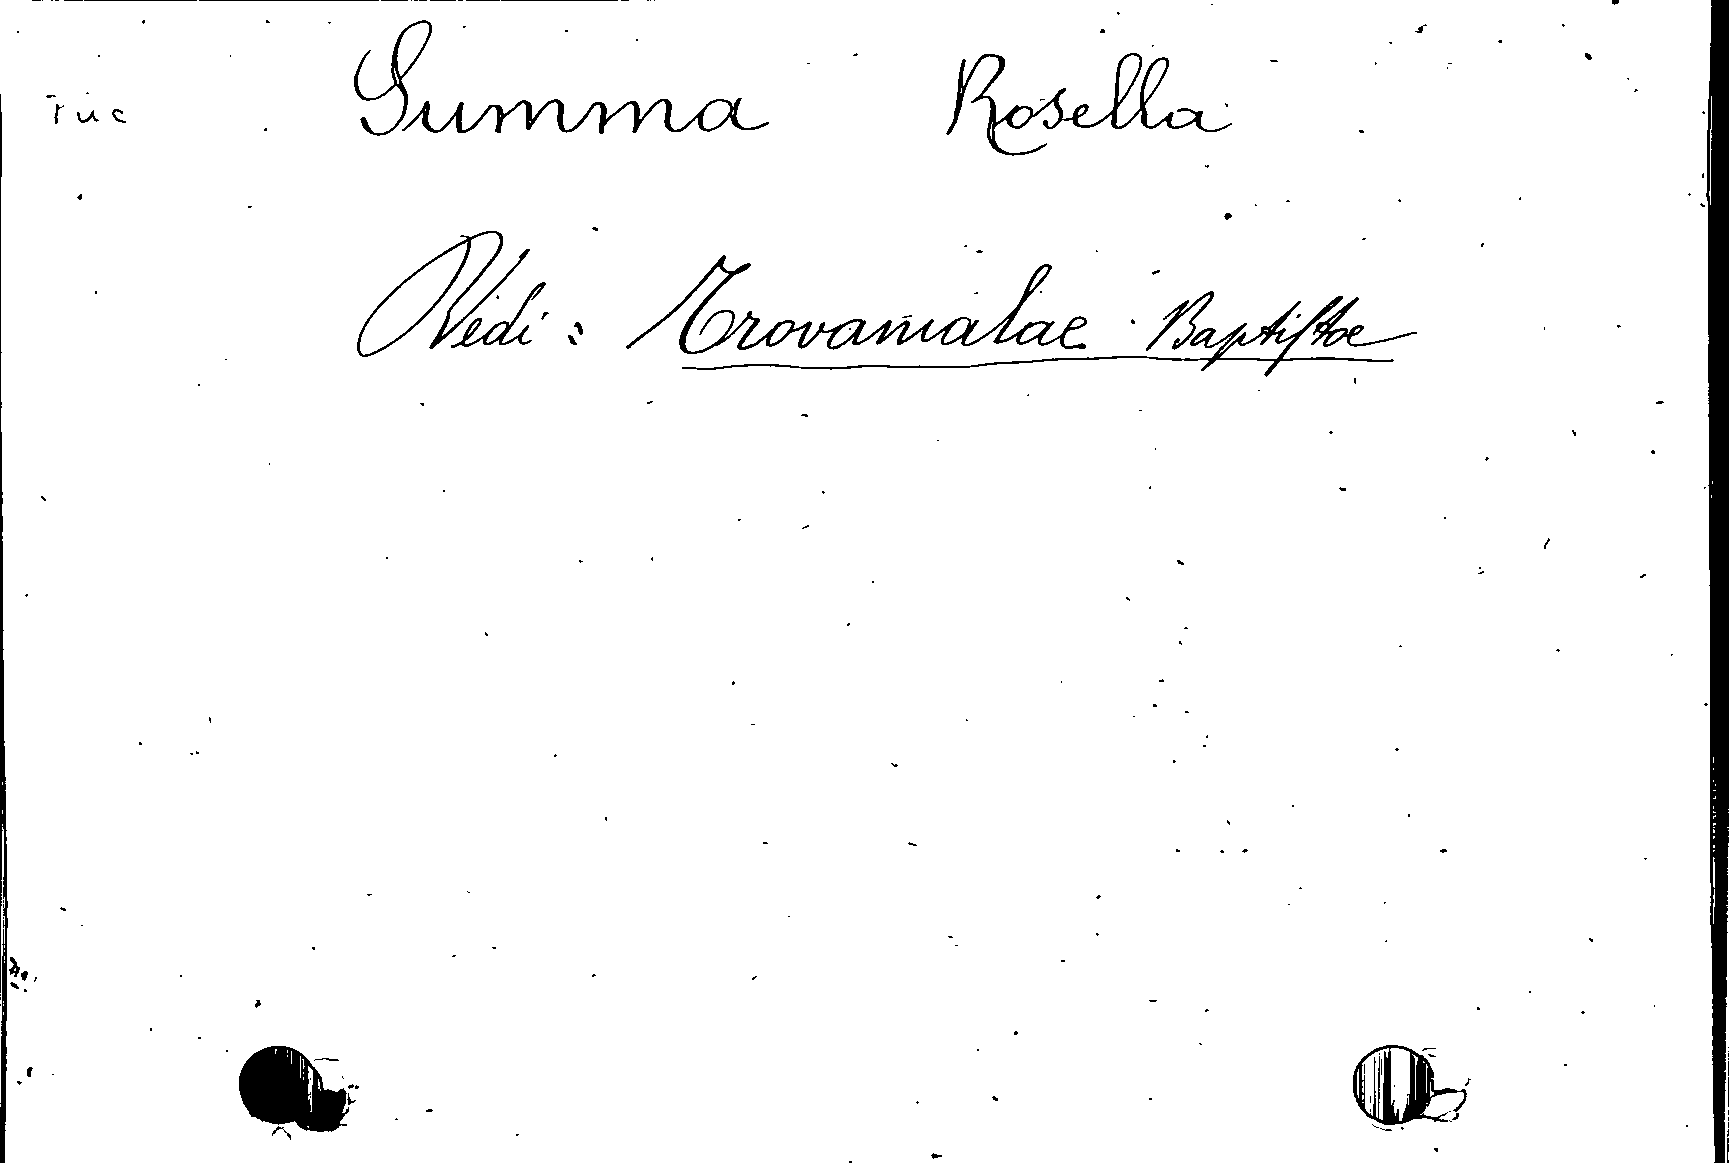 ruc Summa Rosella
Vedi: Trovamalae Baptistae